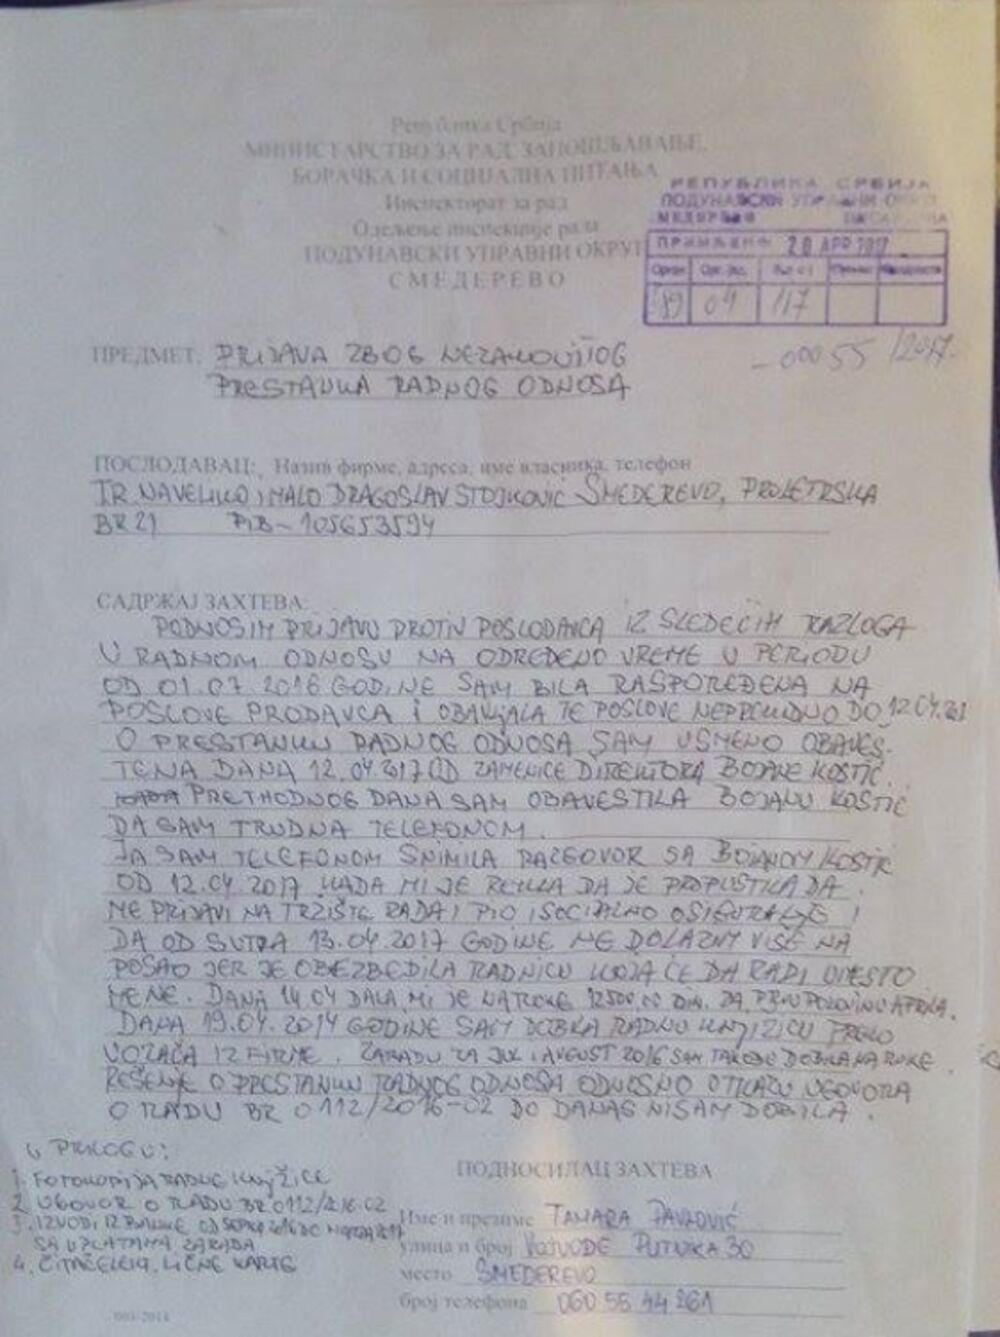 Република Србија
МИНИСТАРСТВО ЗА РАД, ЗАПОШЉАВАЊЕ,
БОРАЧКА И СОЦИЈАЛНА ПИТАЊА
Инспекторат за рад
Одељење инспекције рада
ПОДУНАВСКИ УПРАВНИ ОКРУГ
СМЕДЕРЕВО
РЕПУБЛИКА СРБИЈА
ПОДУНАВСКИ УПРАВНИ
ПРИМЉЕНО 20 АПР 2017
Орган Орг. јед.
04 117
-00055/2017.
ПРЕДМЕТ: PRIJAVA ZBOG NEZAKONITOG
PRESTANKA RADNOG ODNOSA
ПОСЛОДАВАЦ: Назив фирме, адреса, име власника, телефон
TR NAVELIKO I MALO DRAGOSLAV STOJKOVIĆ SMEDEREVO, PROLETRSKA
BR 21 PIB - 105653594
САДРЖАЈ ЗАХТЕВА:
PODNOSIM PRIJAVU PROTIV POSLODAVCA IZ SLEDEĆIH RAZLOGA
U RADNOM ODNOSU NA ODREĐENO VREME U PERIODU
OD 01.07.2016 GODINE SAM BILA RASPOREĐENA NA
POSLOVE PRODAVCA I OBAVLJALA TE POSLOVE NEPREKIDNO DO 12.04.201
O PRESTANKU RADNOG ODNOSA SAM USMENO OBAVEŠ-
TENA DANA 12.04.2017 OD ZAMENICE DIREKTORA BOJANE KOSTIĆ.
PRETHODNOG DANA SAM OBAVESTILA BOJANU KOSTIĆ
DA SAM TRUDNA TELEFONOM.
JA SAM TELEFONOM SNIMILA RAZGOVOR SA BOJANOM KOSTIĆ
OD 12.04.2017 KADA MI JE REKLA DA JE PROPUSTILA DA
ME PRIJAVI NA TRŽIŠTE RADA I PIO I SOCIJALNO OSIGURANJE I
DA OD SUTRA 13.04.2017 GODINE NE DOLAZIM VIŠE NA
POSAO JER JE OBEZBEDILA RADNICU KOJA ĆE DA RADI UMESTO
MENE. DANA 14.04 DALA MI JE NA RUKE 12500,00 DIN. ZA PRVU POLOVINU APRILA.
DANA 19.04.2017 GODINE SAM DOBILA RADNU KNJIŽICU PREKO
VOZAČA IZ FIRME. ZARADU ZA JUL I AVGUST 2016 SAM TAKOĐE DOBILA NA RUKE
REŠENJE O PRESTANKU RADNOG ODNOSA ODNOSNO OTKAZU UGOVORA
O RADU BR 0112/2016-02 DO DANAS NISAM DOBILA.
U PRILOGU:
1. FOTOKOPIJA RADNE KNJIŽICE
2. UGOVOR O RADU BR 0112/2016-02
3. IZVODI IZ BANKE OD
SA UPLATAMA ZARADA
4. LIČNE KARTE
ПОДНОСИЛАЦ ЗАХТЕВА
Име и презиме TAMARA PAVLOVIĆ
улица и број VOJVODE PUTNIKA 30
место SMEDEREVO
број телефона 060 55 44 261